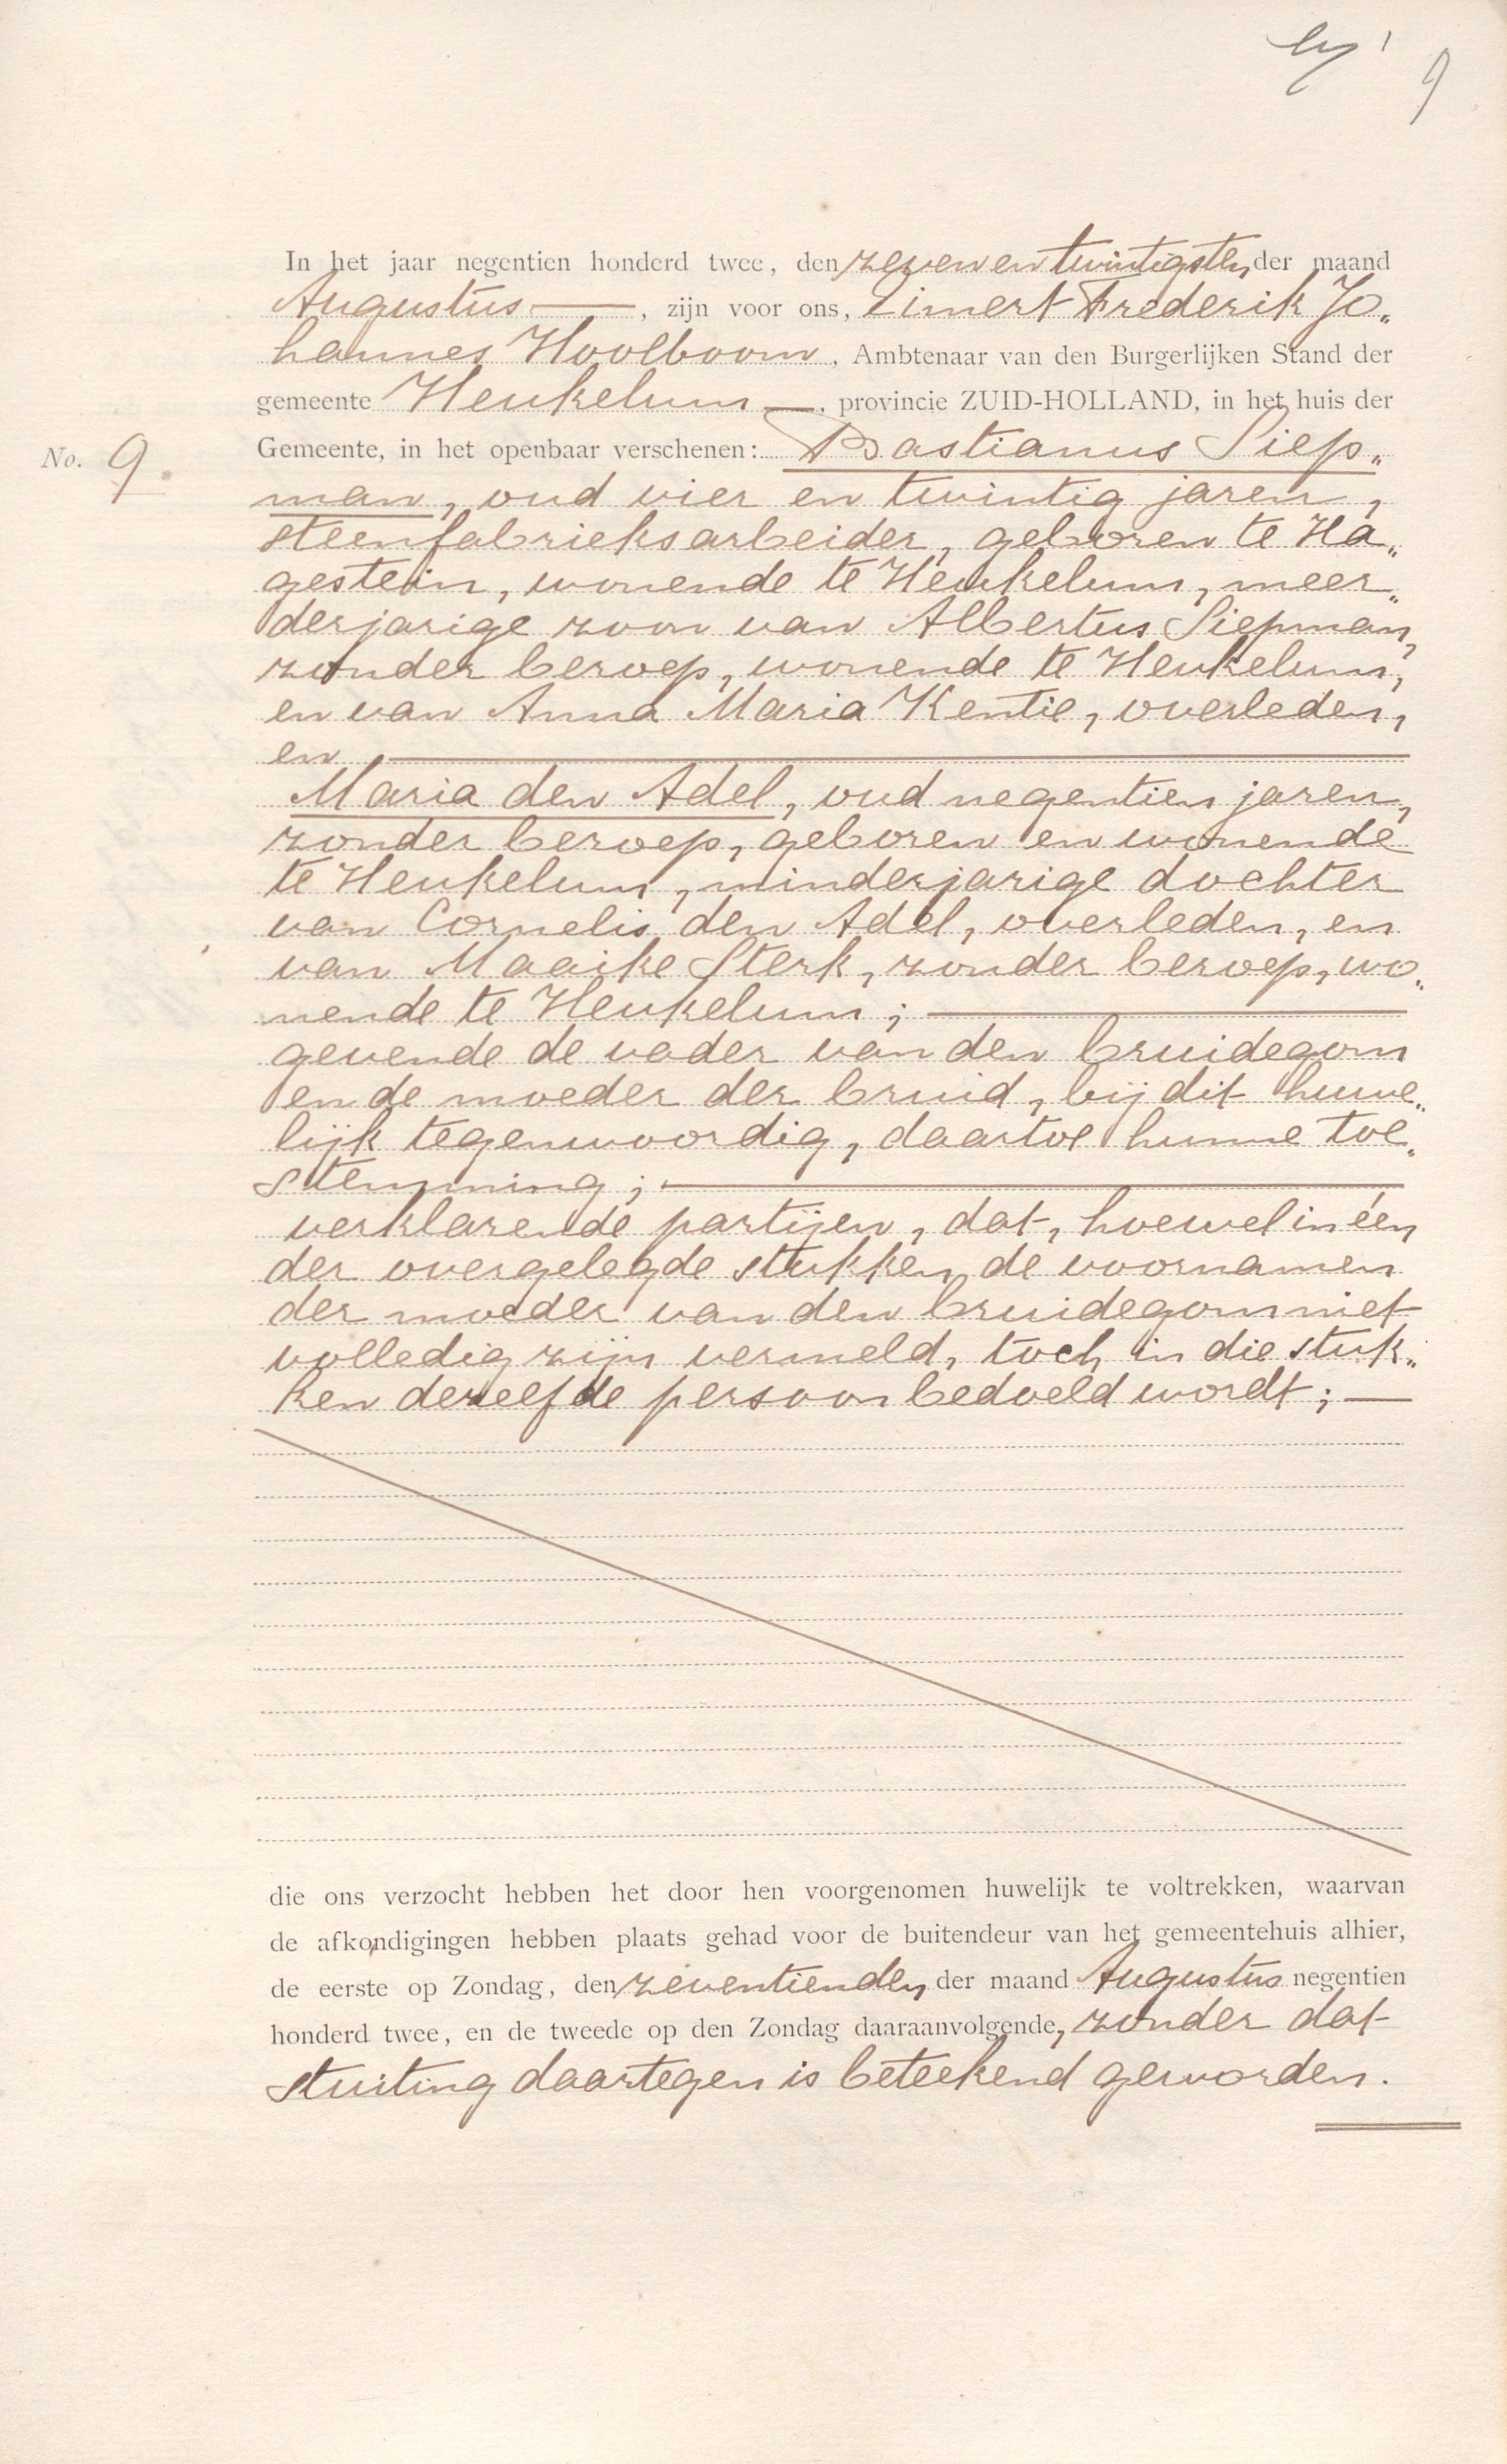 9
In het jaar negentien honderd twee, den zeven en twintigsten der maand
Augustus —, zijn voor ons, Eimert Frederik Jo„
hannes Hoolboom, Ambtenaar van den Burgerlijken Stand der
gemeente Heukelum —, provincie ZUID-HOLLAND, in het huis der
No. 9. Gemeente, in het openbaar verschenen: Bastianus Siep„
man, oud vier en twintig jaren,
steenfabrieksarbeider, geboren te Ha„
gestein, wonende te Heukelum, meer„
derjarige zoon van Albertus Siepman,
zonder beroep, wonende te Heukelum,
en van Anna Maria Kentie, overleden,
en —
Maria den Adel, oud negentien jaren,
zonder beroep, geboren en wonende
te Heukelum, minderjarige dochter
van Cornelis den Adel, overleden, en
van Maaike Sterk, zonder beroep, wo„
nende te Heukelum; —
gevende de vader van den bruidegom
en de moeder der bruid, bij dit huwe„
lijk tegenwoordig, daartoe hunne toe„
stemming; —
verklarende partijen, dat, hoewel in één
der overgelegde stukken de voornamen
der moeder van den bruidegom niet
volledig zijn vermeld, toch in die stuk„
ken dezelfde persoon bedoeld wordt; —
die ons verzocht hebben het door hen voorgenomen huwelijk te voltrekken, waarvan
de afkondigingen hebben plaats gehad voor de buitendeur van het gemeentehuis alhier,
de eerste op Zondag, den zeventienden der maand Augustus negentien
honderd twee, en de tweede op den Zondag daaraanvolgende, zonder dat
stuiting daartegen is beteekend geworden.